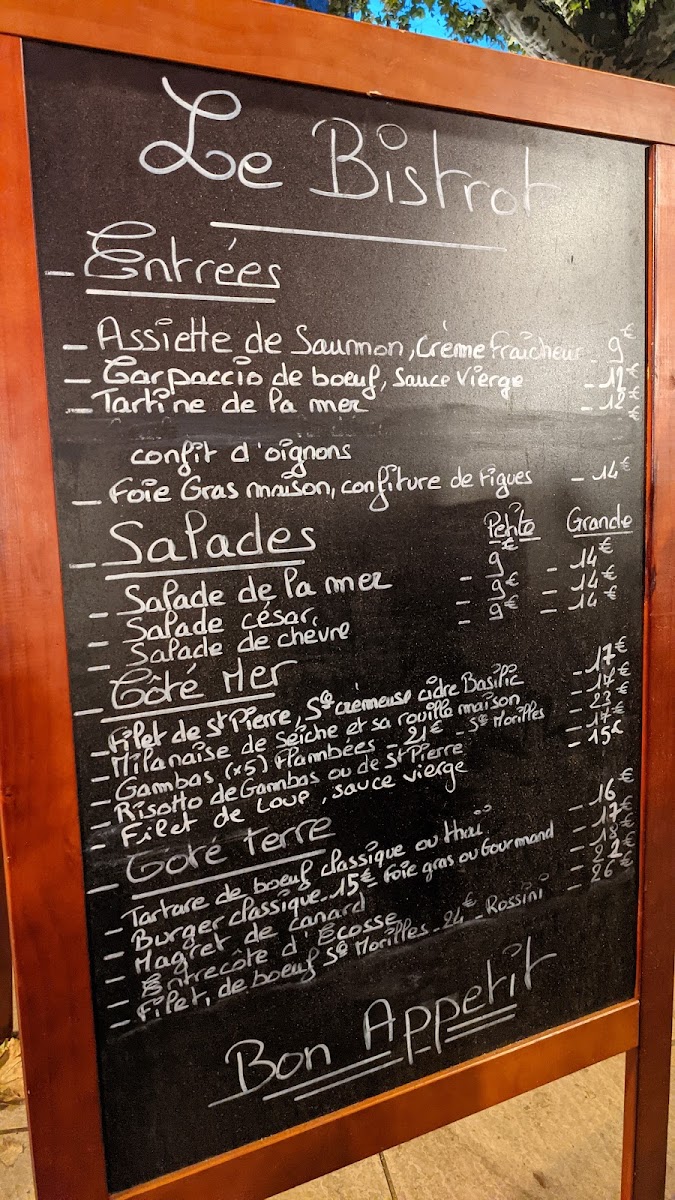 Le Bistrot
- Entrées
- Assiette de Saumon, Crème fraîcheur - 9€
- Carpaccio de boeuf, Sauce Vierge - 12€
- Tartine de la mer - 12€
€
confit d'oignons
- Foie Gras maison, confiture de Figues - 14€
- Salades Petite Grande
- Salade de la mer - 9€ - 14€
- Salade césar, - 9€ - 14€
- Salade de chèvre - 9€ - 14€
- Côté Mer
- Filet de St Pierre, Sce crèmeuse cidre Basilic - 17€
- Milanaise de seiche et sa rouille maison - 17€
- Gambas (x5) Flambées - 21€ - Sce Morilles - 23€
- Risotto de Gambas ou de St Pierre - 17€
- Filet de Loup, sauce vierge - 15€
- Coté terre
- Tartare de boeuf classique ou thaï - 16€
- Burger classique - 15€ - Foie gras ou Gourmand - 17€
- Magret de canard - 18€
- Entrecôte d'Écosse - 22€
- Filet, de boeuf Sce Morilles - 24€ - Rossini - 26€
Bon Appetit